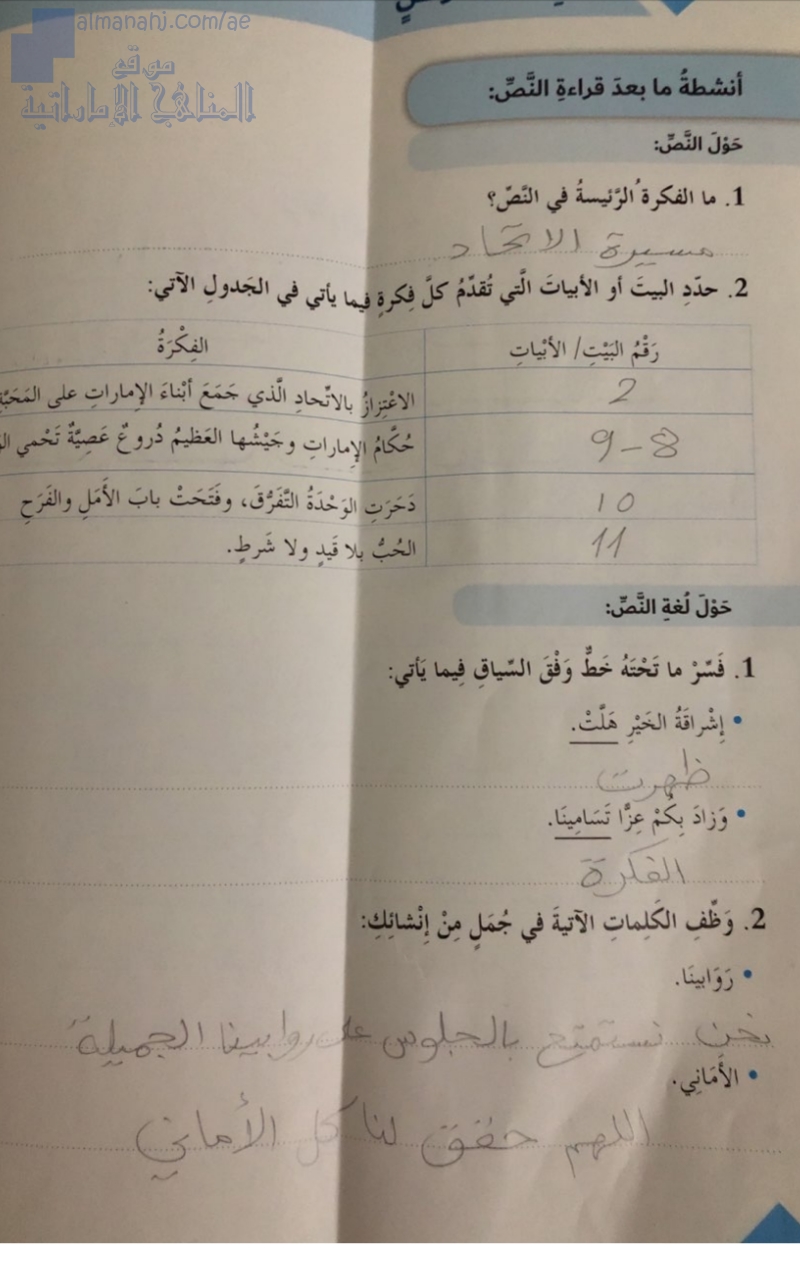 almanahj.com/ae
موقع
المناهج الإماراتية
أنشطةُ ما بعدَ قراءةِ النَّصِّ:
حَوْلَ النَّصِّ:
1. ما الفكرةُ الرَّئيسةُ في النَّصِّ؟
مسيرة الاتحاد
2. حدّدِ البيتَ أو الأبياتَ الَّتي تُقدّمُ كلَّ فِكرةٍ فيما يأتي في الجَدولِ الآتي:
رَقْمُ البَيْتِ/ الأبْياتِ الفِكْرَةُ
2 الاعْتِزازُ بالاتّحادِ الَّذي جَمَعَ أبْناءَ الإماراتِ على
8-9 حُكَّامُ الإماراتِ وجَيْشُها العَظيمُ دُروعٌ عَصِيَّةٌ تَحْمي
10 دَحَرَتِ الوَحْدَةُ التَّفَرُّقَ، وفَتَحَتْ بابَ الأَمَلِ والفَرَحِ
11 الحُبُّ بِلا قَيدٍ ولا شَرطٍ.
حَوْلَ لُغةِ النَّصِّ:
1. فَسّرْ ما تَحْتَهُ خَطٌّ وَفْقَ السّياقِ فِيما يَأتي:
• إشْراقَةُ الخَيْرِ هَلَّتْ.
ظهرت
• وَزادَ بِكُمْ عِزًّا تَسَامِينَا.
الفكرة
2. وَظِّفِ الكَلِماتِ الآتيةَ في جُمَلٍ مِنْ إنْشائِكِ:
• رَوَابينَا.
نحن نستمتع بالجلوس على روابينا الجميلة
• الأَمَانِي.
اللهم حقق لنا كل الأماني